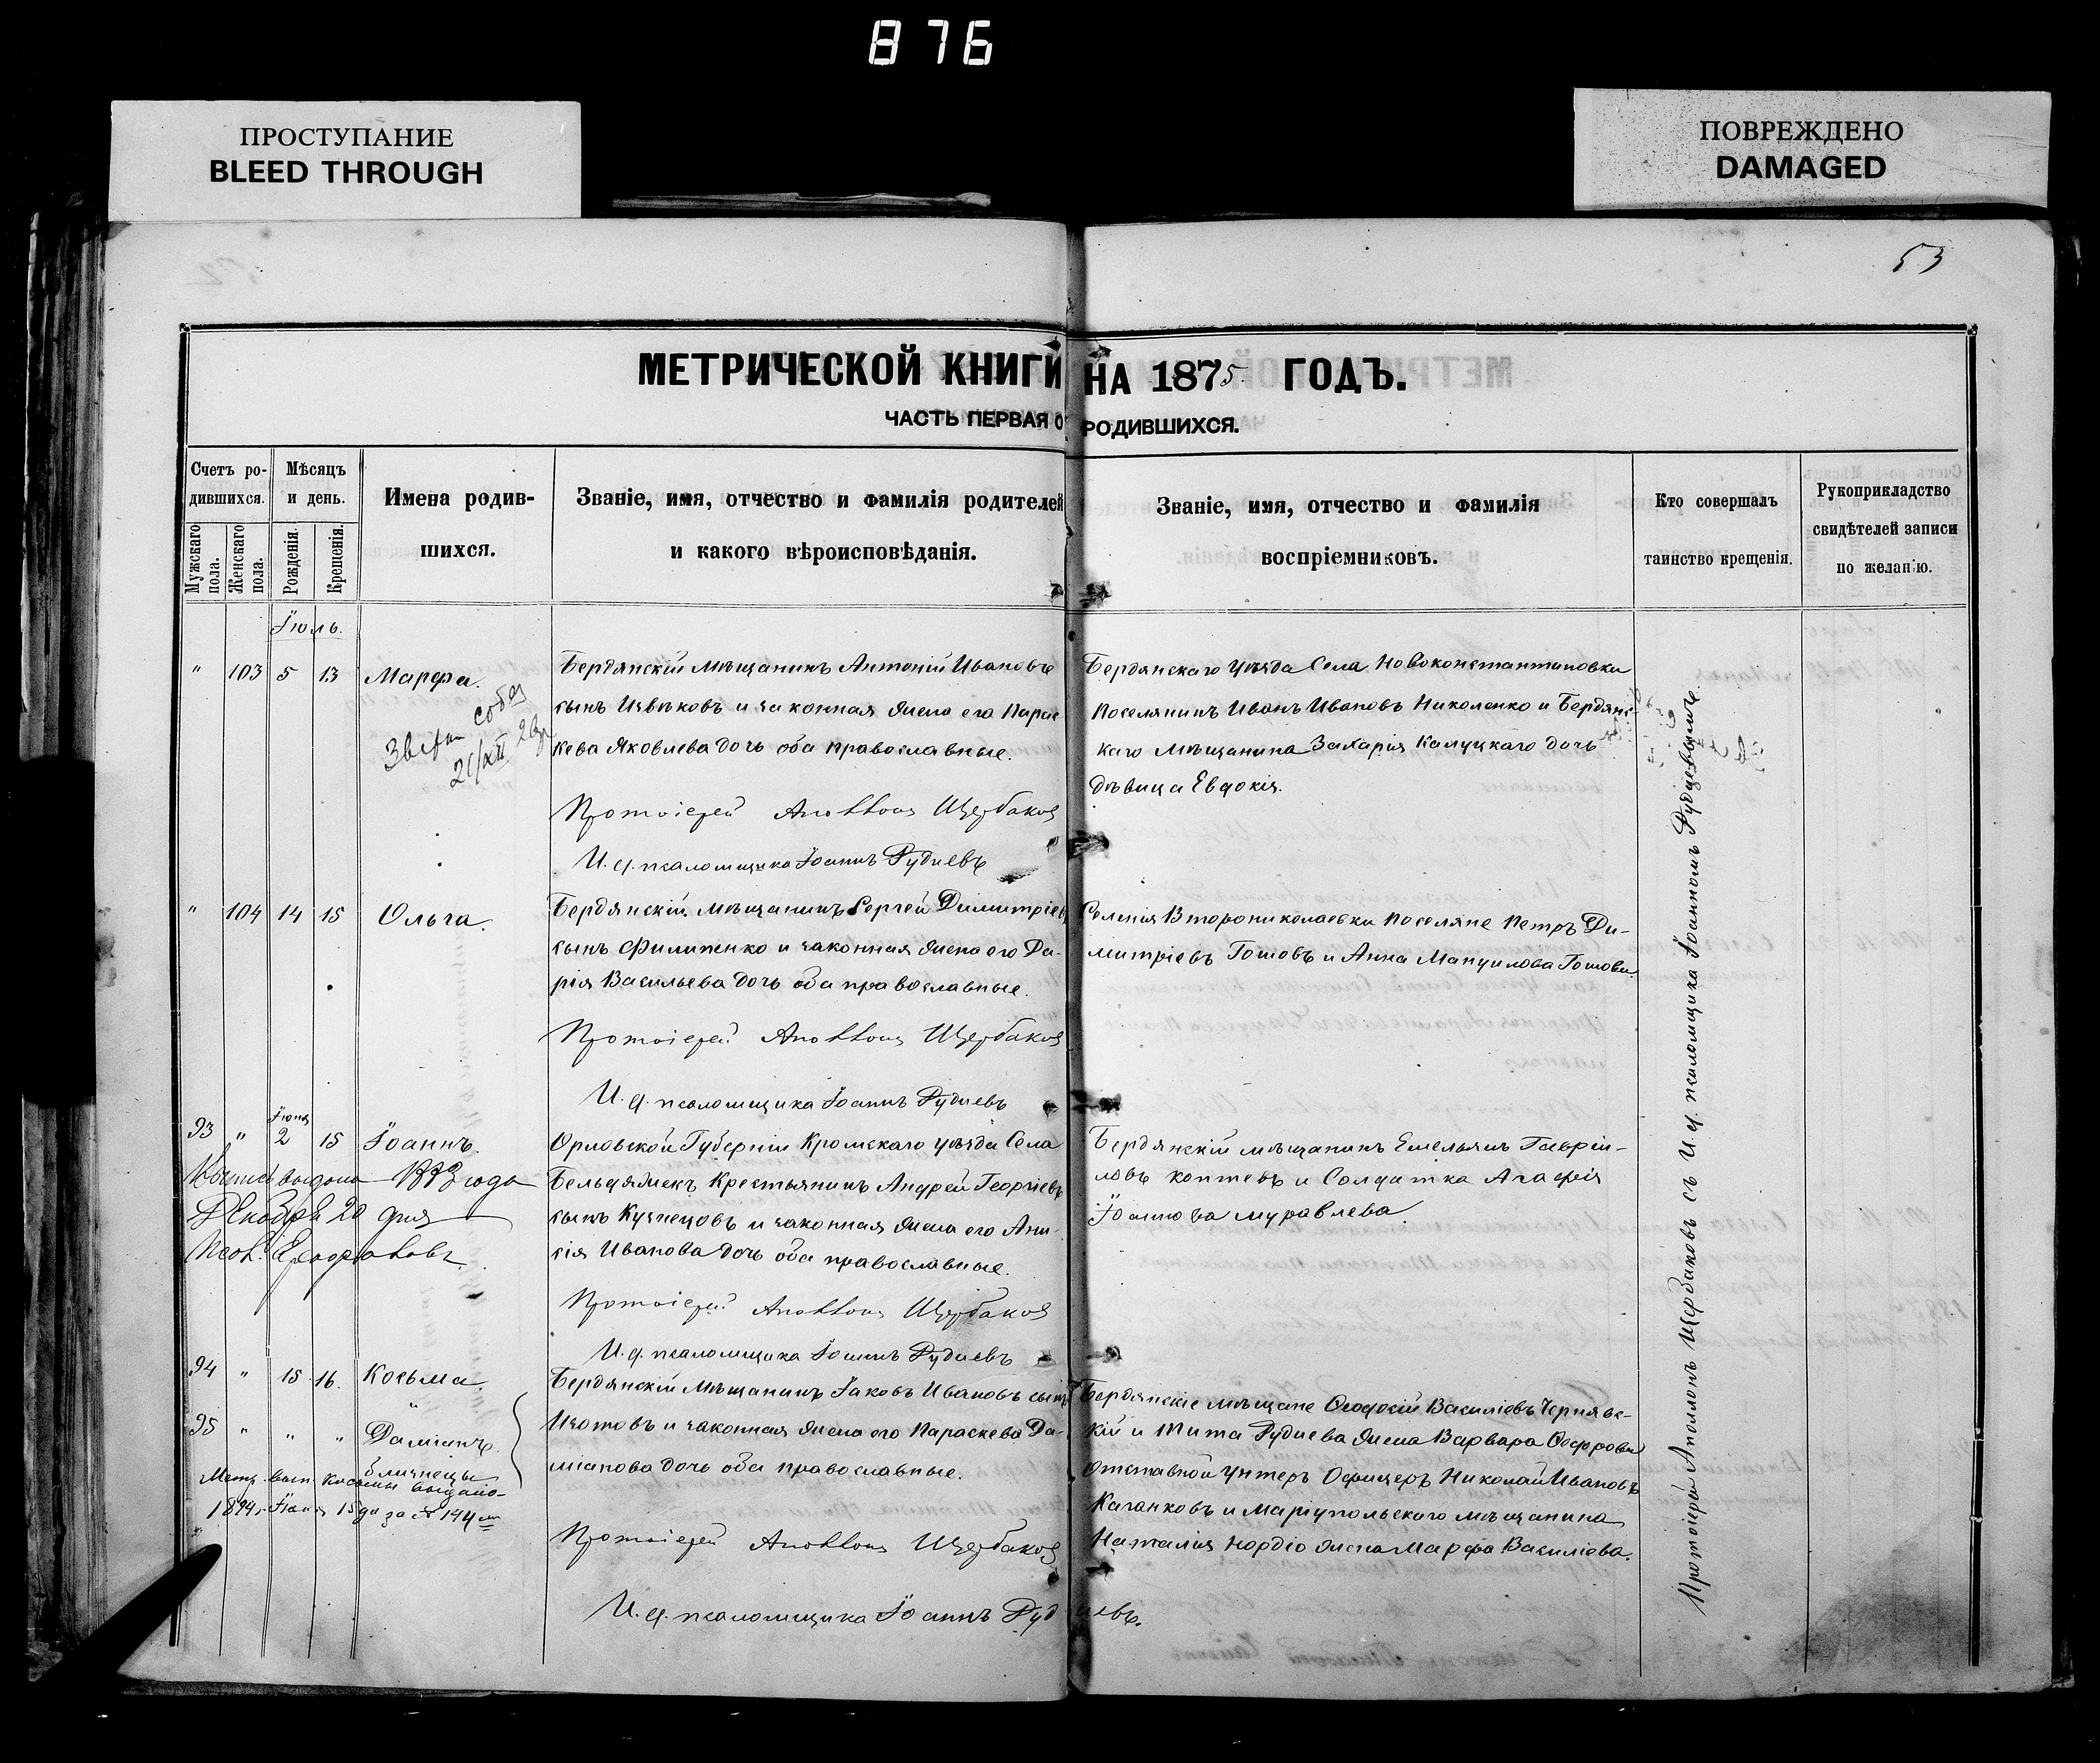 876
ПРОСТУПАНИЕ
BLEED THROUGH
ПОВРЕЖДЕНО
DAMAGED
53
МЕТРИЧЕСКОЙ КНИГИ НА 1875 ГОДЪ.
ЧАСТЬ ПЕРВАЯ О РОДИВШИХСЯ.
Счетъ ро-
дившихся.
Мужскаго пола.
Женскаго пола.
Мѣсяцъ
и день.
Рожденія.
Крещенія.
Имена родив-
шихся.
Званіе, имя, отчество и фамилія родителей
и какого вѣроисповѣданія.
Званіе, имя, отчество и фамилія
воспріемниковъ.
Кто совершалъ
таинство крещенія.
Рукоприкладство
свидѣтелей записи
по желанію.
Іюль.
" 103 5 13 Марфа.
Бердянскій Мѣщанинъ Антоній Ивановъ
сынъ Извѣковъ и законная жена его Парас-
кева Яковлева дочь оба православные.
Протоіерей Аполлонъ Щербаковъ
И. д. псаломщика Іоаннъ Рудиевъ
Бердянскаго уѣзда Села Новоконстантиновки
Поселянинъ Иванъ Ивановъ Николенко и Бердянс-
каго Мѣщанина Захарія Калуцкаго дочь
дѣвица Евдокія.
21/XII
" 104 14 15 Ольга.
Бердянскій Мѣщанинъ Сергей Димитріевъ
сынъ Филипенко и законная жена его Да-
рія Васильева дочь оба православные.
Протоіерей Аполлонъ Щербаковъ
И. д. псаломщика Іоаннъ Рудиевъ
Селенія Второниколаевки Поселяне Петръ Ди-
митріевъ Гошовъ и Анна Мануилова Гошова.
Іюня
93 " 2 15 Іоаннъ.
выдана года
Декабря 20 дня
Орловской Губерніи Кромскаго уѣзда Села
Бельдяжекъ Крестьянинъ Андрей Георгіевъ
сынъ Кузнецовъ и законная жена его Ани-
сія Иванова дочь оба православные.
Протоіерей Аполлонъ Щербаковъ
И. д. псаломщика Іоаннъ Рудиевъ
Бердянскій мѣщанинъ Емельянъ Гаврии-
ловъ Коптевъ и Солдатка Агафія
Іоаннова Муравлева.
94 " 15 16. Косьма.
95 " " " Даміанъ.
близнецы
Метр. вып. Космы выдано
1894 г. Іюня 15 дн за № 144 мъ
Бердянскій Мѣщанинъ Іаковъ Ивановъ сынъ
Изотовъ и законная жена его Параскева Да-
міанова дочь оба православные.
Протоіерей Аполлонъ Щербаковъ
И. д. псаломщика Іоаннъ Рудиевъ.
Бердянскіе мѣщане Ѳеодосій Василіевъ Чернявс-
кій и Тита Рудиева жена Варвара Ѳеодорова
Отставной Унтеръ Офицеръ Николай Ивановъ
Каганковъ и Маріупольскаго мѣщанина
Наталія Нордіо жена Марфа Василіева.
Протоіерей Аполлонъ Щербаковъ съ И. д. псаломщика Іоанномъ Рудиевымъ.